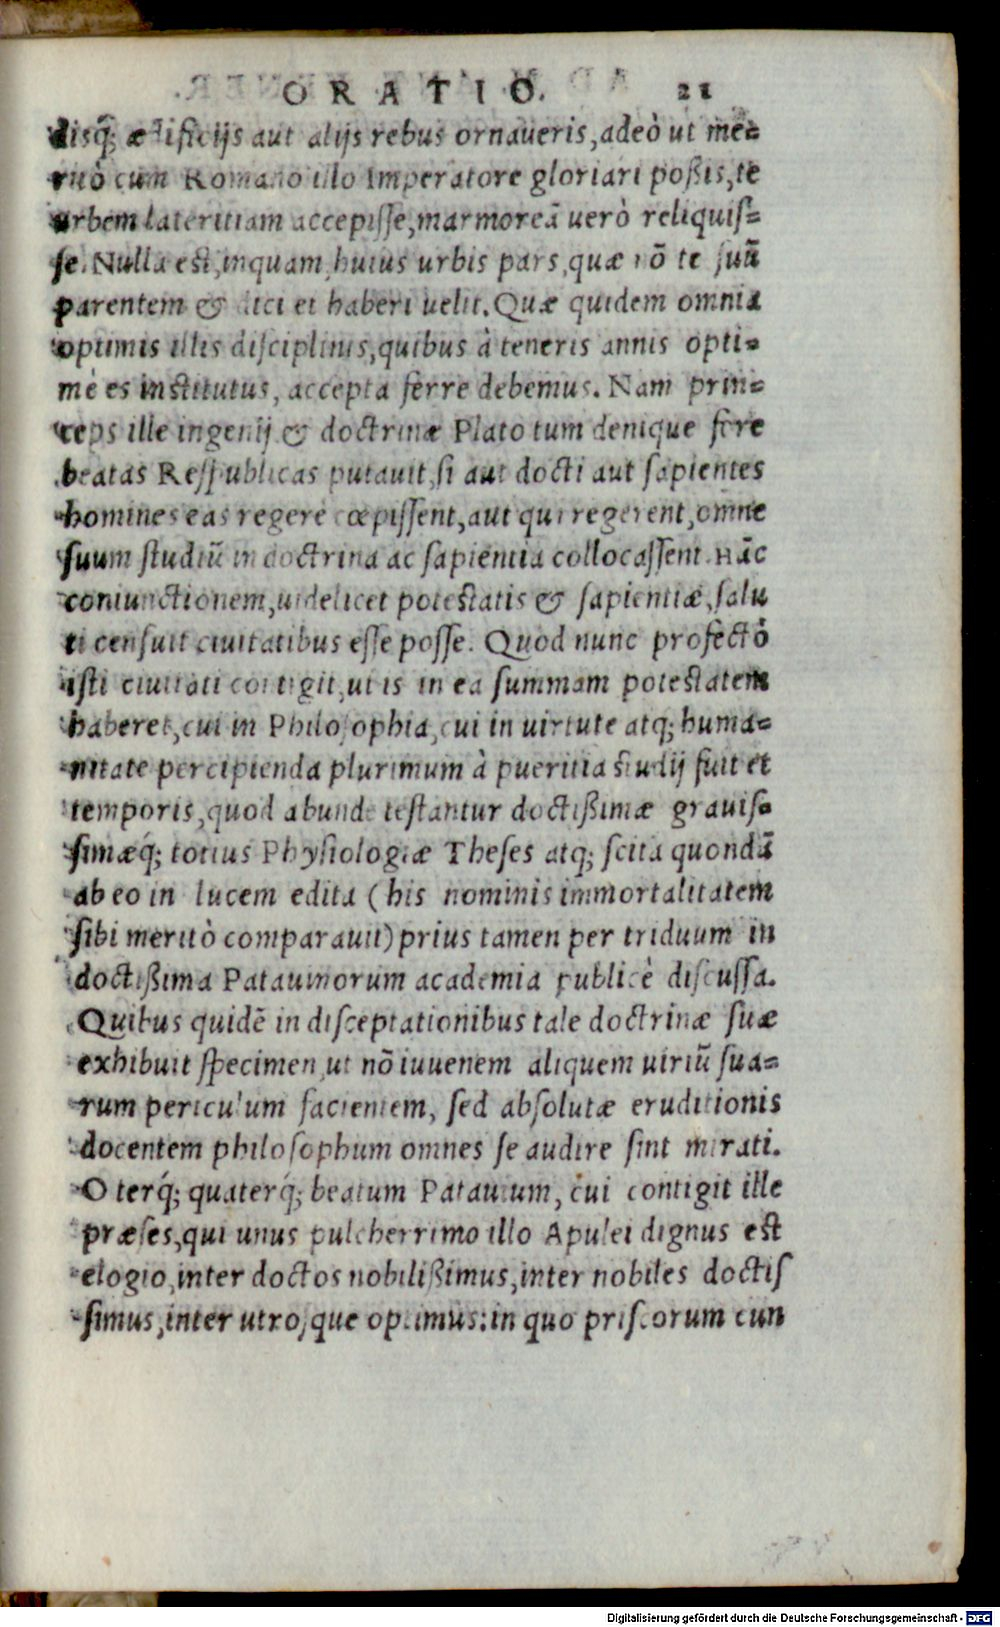 ORATIO. 21
disq́; ædificijs aut alijs rebus ornaueris, adeò ut me=
ritò cum Romano illo Imperatore gloriari poßis, te
urbem lateritiam accepiſſe, marmoreā uerò reliquiſ=
ſe. Nulla est, inquam, huius urbis pars, quæ nō te ſuū
parentem & dici et haberi uelit. Quæ quidem omnia
optimis illis diſciplinis, quibus à teneris annis opti=
mè es institutus, accepta ferre debemus. Nam prin=
ceps ille ingenij & doctrinæ Plato tum denique fore
beatas Reſpublicas putauit, ſi aut docti aut ſapientes
homines eas regere cœpiſſent, aut qui regerent, omne
ſuum ſtudiū in doctrina ac ſapientia collocaſſent. Hāc
coniunctionem, uidelicet potestatis & ſapientiæ, ſalu
ti cenſuit ciuitatibus eſſe poſſe. Quod nunc profectò
iſti ciuitati contigit, ut is in ea ſummam potestatem
haberet, cui in Philoſophia, cui in uirtute atq; huma=
nitate percipienda plurimum à pueritia ſtudij fuit et
temporis, quod abunde teſtantur doctißimæ grauiſ=
ſimæq́; totius Phyſiologiæ Theſes atq; ſcita quondā
ab eo in lucem edita (his nominis immortalitatem
ſibi meritò comparauit) prius tamen per triduum in
doctißima Patauinorum academia publicè diſcuſſa.
Quibus quidē in diſceptationibus tale doctrinæ ſuæ
exhibuit ſpecimen, ut nō iuuenem aliquem uiriū ſua=
rum periculum facientem, ſed abſolutæ eruditionis
docentem philoſophum omnes ſe audire ſint mirati.
O terq́; quaterq́; beatum Patauium, cui contigit ille
præſes, qui unus pulcherrimo illo Apulei dignus est
elogio, inter doctos nobilißimus, inter nobiles doctiſ
ſimus, inter utroſque optimus: in quo priſcorum cun
Digitalisierung gefördert durch die Deutsche Forschungsgemeinschaft - DFG